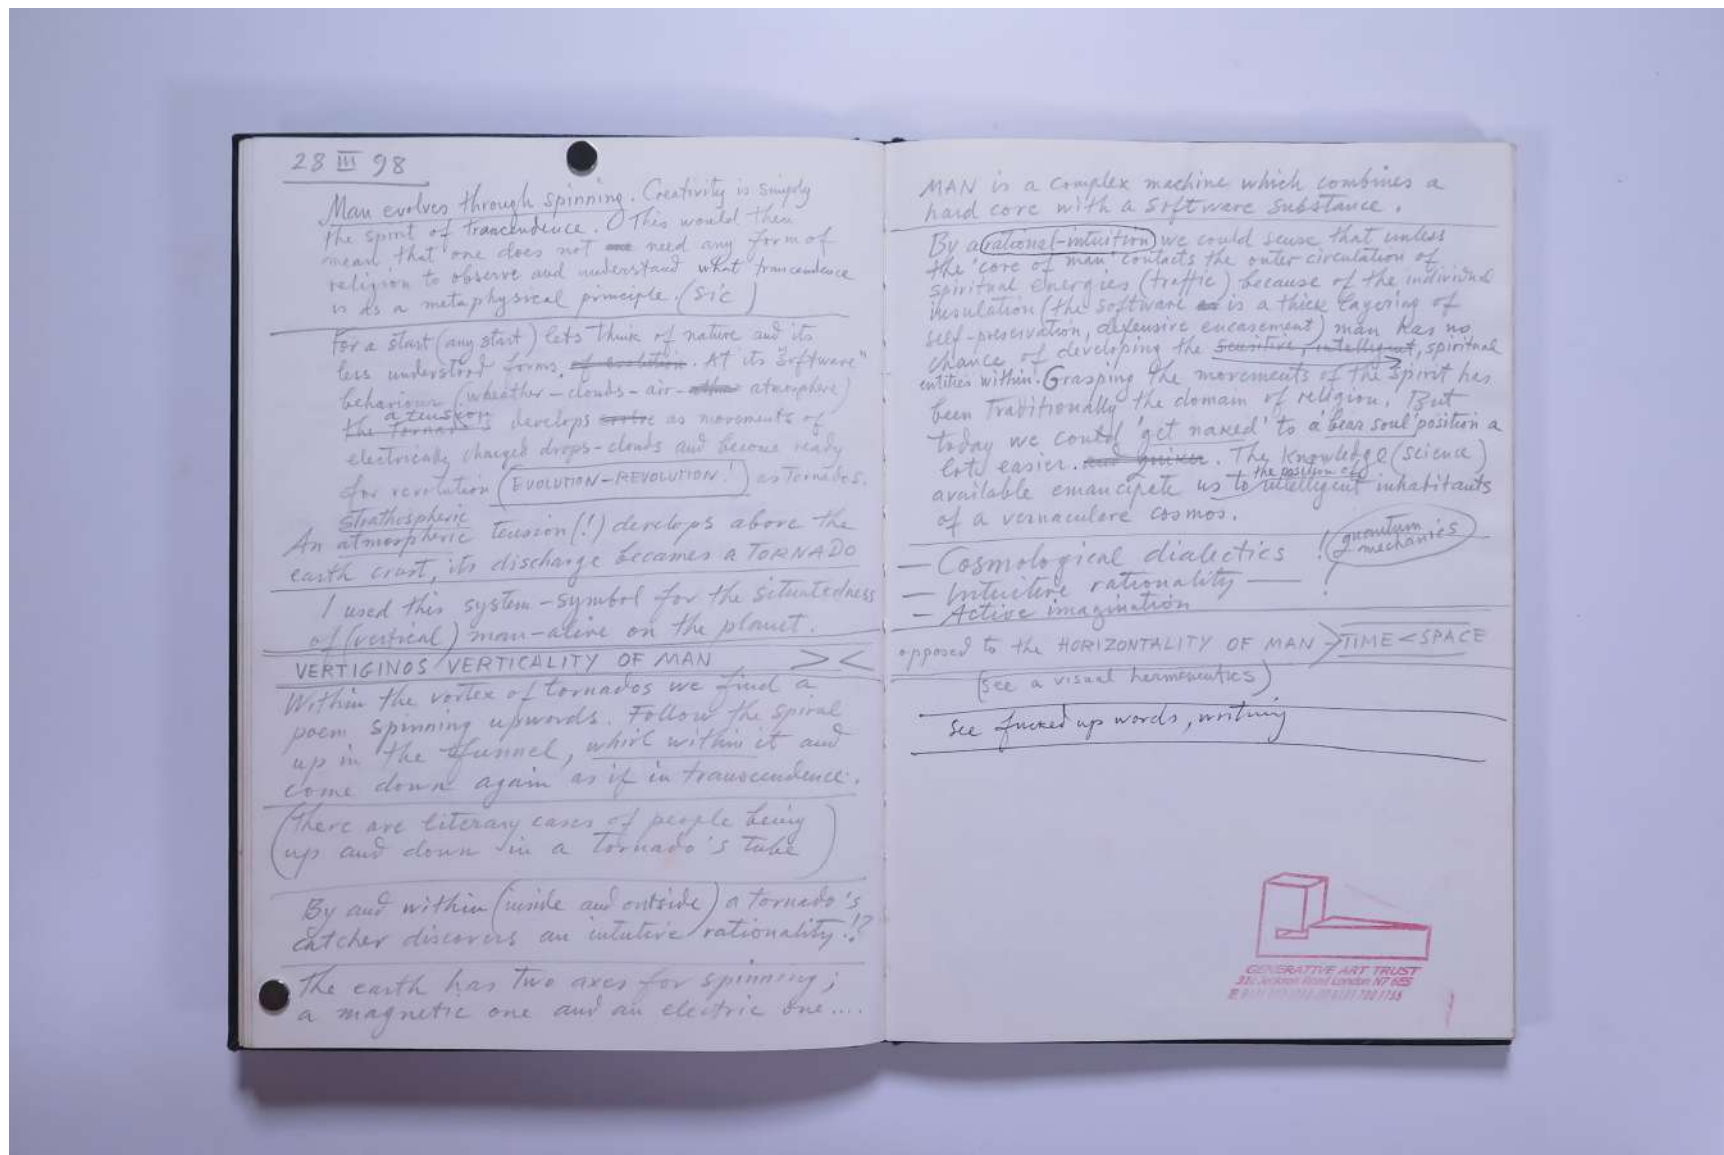 28 III 98
Man evolves through spinning. Creativity is simply
the spirit of trancendence. This would then
mean that one does not need any form of
religion to observe and understand what trancendence
is as a metaphysical principle. (sic)
For a start (any start) lets think of nature and its
less understood forms, of evolution. At its "software"
behaviour (wheather-clouds-air- atmosphere)
a tension
the Tornado's develops as movements of
electrically charged drops-clouds and become ready
for revolution (EVOLUTION-REVOLUTION!) as Tornados.
strathospheric
An atmospheric tension (!) develops above the
earth crust, its discharge becames a TORNADO
I used this system-symbol for the situatedness
of (vertical) man-alive on the planet.
VERTIGINOS VERTICALITY OF MAN ><
Within the vortex of tornados we find a
poem spinning upwords. Follow the spiral
up in the funnel, whirl within it and
come down again as if in transcendence.
(There are literary cases of people being
up and down in a Tornado's tube)
By and within (inside and outside) a tornado's
catcher discovers an intutive rationality!?
The earth has two axes for spinning;
a magnetic one and an electric one....
MAN is a complex machine which combines a
hard core with a software substance.
By a rational-intuition we could sense that unless
the 'core of man' contacts the outer circulation of
spiritual energies (traffic) because of the individual
insulation (the software is a thick layering of
self-preservation, defensive encasement) man has no
chance of developing the sensitive, intelligent, spiritual
entities within. Grasping the movements of the spirit has
been traditionally the domain of religion. But
today we could 'get naked' to a 'bear soul' position a
lot easier. The knowledge (science)
the position of
available emancipate us to intelligent inhabitants
of a vernaculare cosmos.
— Cosmological dialectics ! quantum mechanics
— Intuitive rationality —
— Active imagination
opposed to the HORIZONTALITY OF MAN > TIME < SPACE
(see a visual hermeneutics)
see fucked up words, writing
GENERATIVE ART TRUST
Jackson Road London N7 6ES